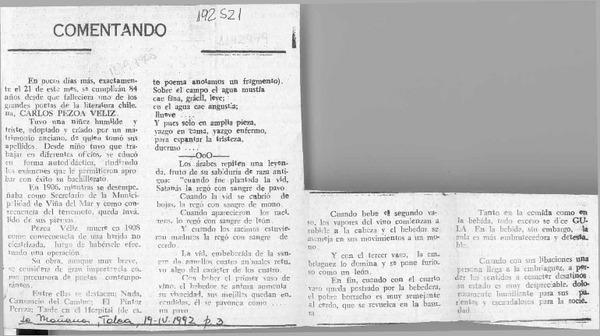 192521
COMENTANDO
En pocos días más, exactamen-
te el 21 de este mes, se cumplirán 84
años desde que falleciera uno de los
grandes poetas de la literatura chile-
na, CARLOS PEZOA VELIZ.
Tuvo una niñez humilde y
triste, adoptado y criado por un ma-
trimonio anciano, de quien tomó sus
apellidos. Desde niño tuvo que tra-
bajar en diferentes oficios, se educó
en forma autodidáctica, rindiendo
los exámenes que le permitieron apro-
bar con éxito su bachillerato.
En 1906, mientras se desempe-
ñaba como Secretario de la Munici-
palidad de Viña del Mar y como con-
secuencia del terremoto, queda invá-
lido de sus piernas.
Pezoa Véliz muere en 1908
como consecuencia de una herida no
cicatrizada, luego de habérsele efec-
tuando una operación.
Su obra, aunque muy breve,
se considera de gran importancia co-
mo precursora de poetas contempo-
ráneos.
Entre ellas se destacan: Nada,
Cansancio del Camino, El Pintor
Pereza; Tarde en el Hospital (de es-
te poema anotamos un fragmento).
Sobre el campo el agua mustia
cae fina, grácil, leve;
con el agua cae angustia;
llueve ....
Y pues solo en amplia pieza,
yazgo en cama, yazgo enfermo,
para espantar la tristeza,
duermo ....
—OoO—
Los árabes repiten una leyen-
da, fruto de su sabiduría de raza anti-
gua: "cuando fue plantada la vid,
Satanás la regó con sangre de pavo
Cuando la vid se cubrió de
hojas, la regó con sangre de mono.
Cuando aparecieron los raci-
mos, la regó con sangre de león.
Y cuando los racimos estuvie-
ron maduros la regó con sangre de
cerdo.
La vid, embeborida de la san-
gre de aquellos cuatro animales refle-
ja algo del carácter de los cuatro.
Con beber el primer vaso de
vino, el bebedor se anima aumenta
su vivacidad, sus mejillas quedan en-
cendidas, él se pavonea como ....
pavo ....
Cuando bebe el segundo va-
so, los vapores del vino comienzan a
subirle a la cabeza y el bebedor se
asemeja en sus movimientos a un mo-
no.
Y con el tercer vaso, la em-
briaguez lo domina y se pone furio-
so como un león.
En fin, cuando con el cuarto
vaso queda postrado por la bebedera,
el pobre borracho es muy semejante
al cerdo, que se revuelca en la basu-
ra
Tanto en la comida como en
la bebida, todo exceso se dice GU-
LA En la bebida, sin embargo, la
gula es más embrutecedora y detesta-
ble.
Cuando con sus libaciones una
persona llega a la embriaguez, a per-
der los sentidos a cometer desatinos
su estado es muy despreciable, dolo-
rosamente humillante para sus pa-
rientes y escandalosa para la socie-
dad.
La Mañana, Talca, 19-IV-1992 p.3